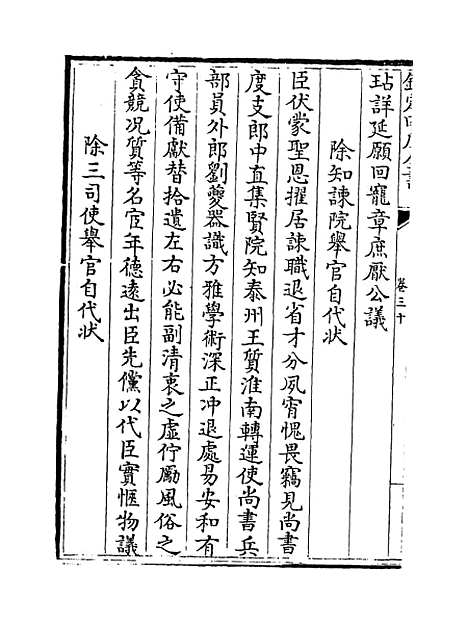 玷詳延願回寵章庶厭公議
除知諫院舉官自代狀
臣伏蒙聖恩擢居諫職退省才分夙宵愧畏竊見尚書
度支郎中直集賢院知泰州王質淮南轉運使尚書兵
部員外郎劉夔器識方雅學術深正冲退處易安和有
守使備獻替拾遺左右必能副清衷之虛佇勵風俗之
貪競况質等名宦年德遠出臣先儻以代臣實愜物議
除三司使舉官自代狀
卷三十